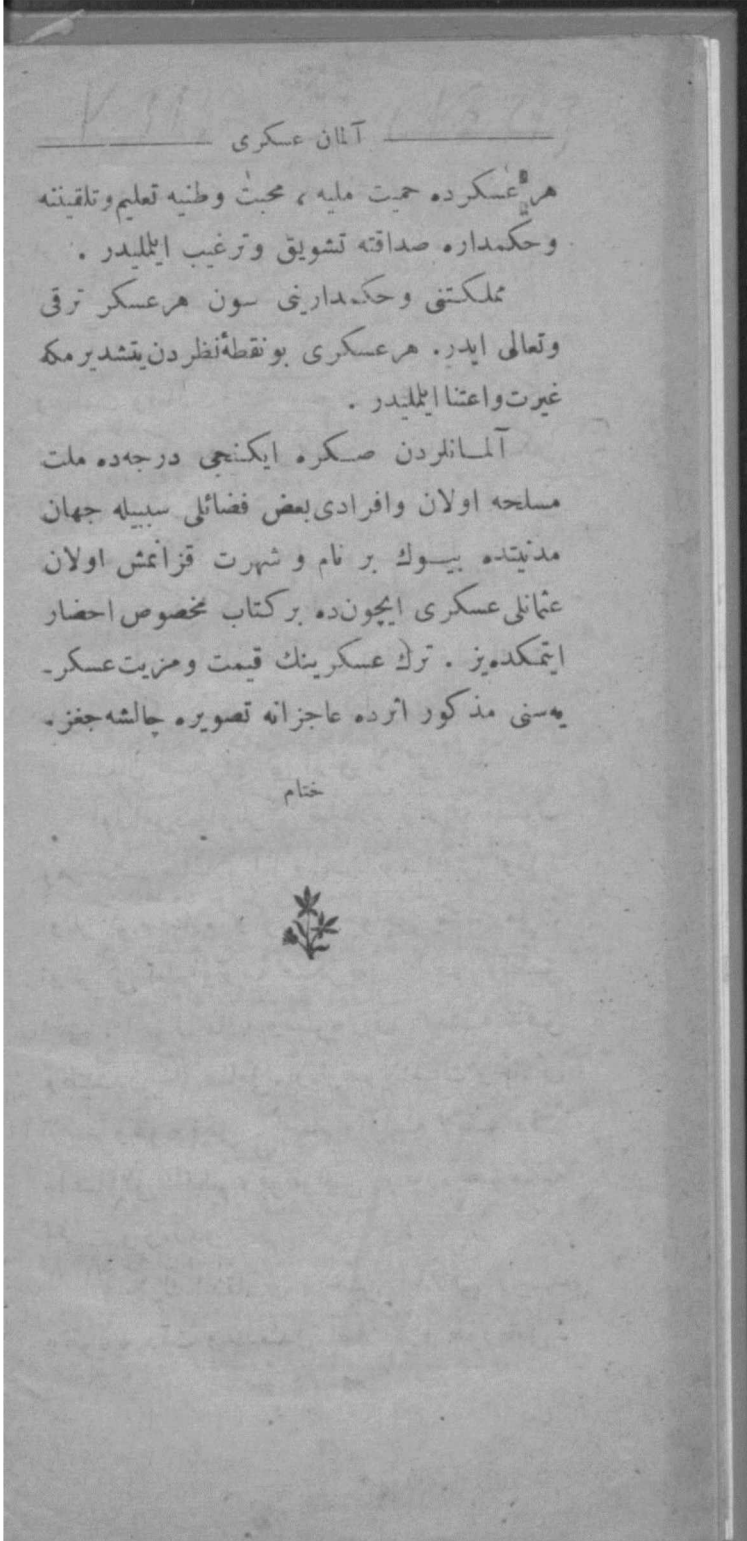 آلمان عسكرى
هر عسكرده حميت مليه ، محبت وطنيه تعليم و تلقيننه
و حكمداره صداقته تشويق و ترغيب ايتمليدر .
مملكتنى و حكمدارينى سون هر عسكر ترقى
وتعالى ايدر. هر عسكرى بو نقطۀ نظردن يتشديرمكه
غيرت و اعتنا ايتمليدر .
آلمــانلردن صــكره ايكـنجى درجه‌ده ملت
مسلحه اولان وافرادى بعض فضائلى سببيله جهان
مدنيتده بيــوك بر نام و شهرت قزانمش اولان
عثمانلى عسكرى ايچون‌ده بر كتاب مخصوص احضار
ايتمكده‌يز . ترك عسكرينك قيمت و مزيت عسكر-
يه‌سنى مذكور اثرده عاجزانه تصويره چالشه‌جغز.
ختام